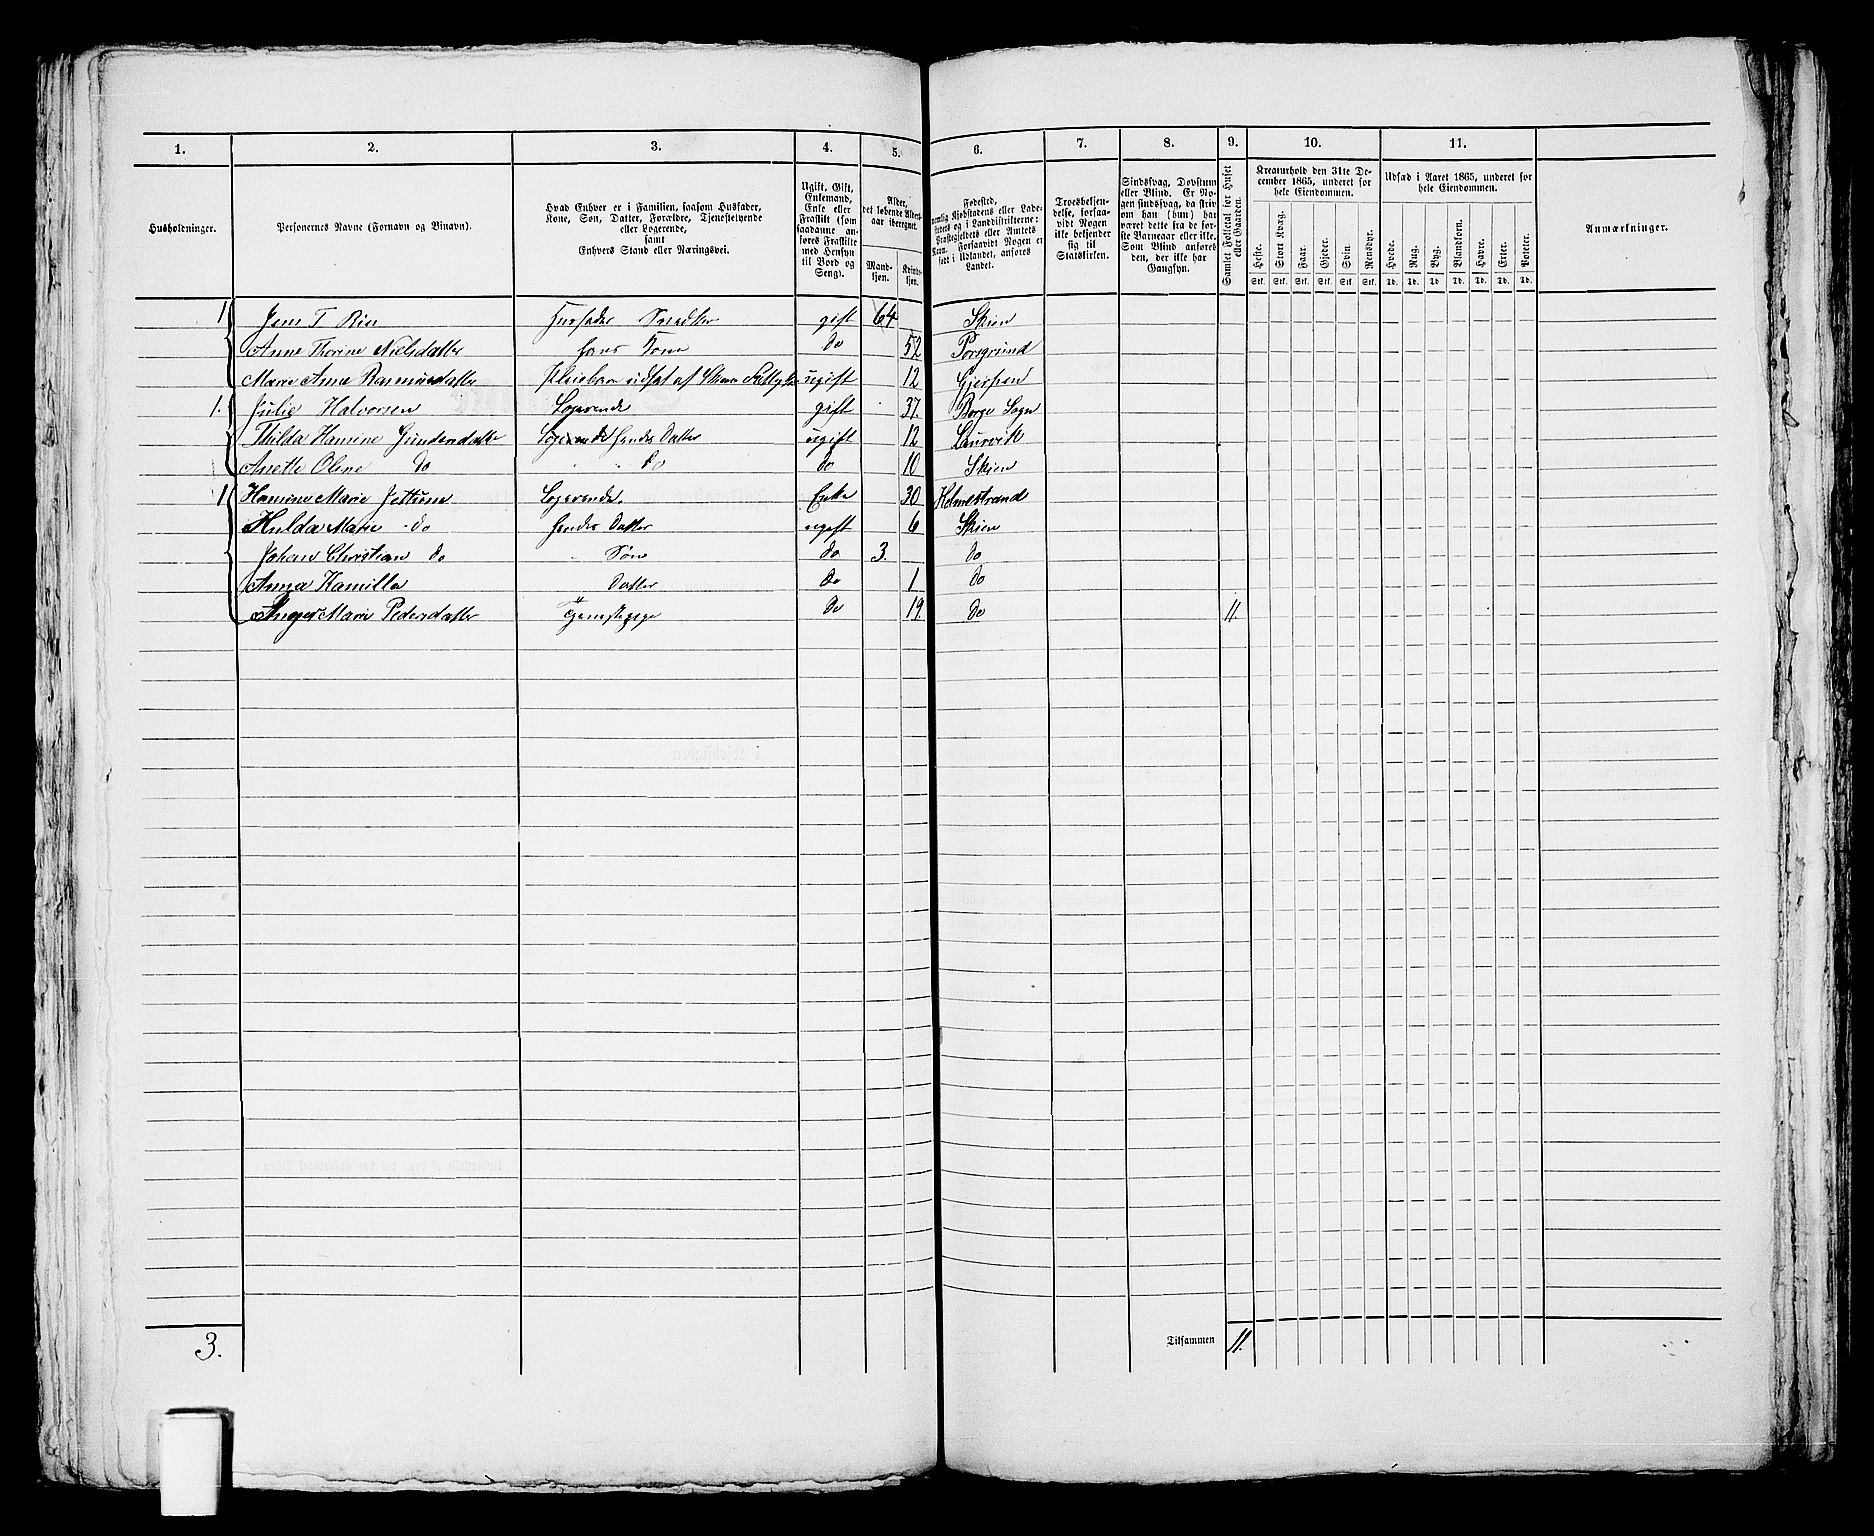 1. 2. 3. 4. 5. 6. 7. 8. 9. 10. 11.
Husholdninger.
Personernes Navne (Fornavn og Binavn).
Hvad Enhver er i Familien, saasom Husfader, Kone, Søn, Datter, Forældre, Tjenestetyende eller Logerende, samt Enhvers Stand eller Næringsvei.
Ugift, Gift, Enkemand, Enke eller Fraskilt (som saadanne anføres Fraskilte med Hensyn til Bord og Seng).
Alder, det løbende Aldersaar iberegnet.
Mandkjøn. Kvindekjøn.
Fødested,
nemlig Kjøbstadens eller Ladestedets og i Landdistrikterne: Præstegjeldets eller Amtets Navn. Forsaavidt Nogen er født i Udlandet, anføres Landet.
Troesbekjendelse, forsaavidt Nogen ikke bekjender sig til Statskirken.
Sindssvag, Døvstum eller Blind. Er Nogen sindssvag, da skriv om han (hun) har været dette fra de første Barneaar eller ikke. Som Blind anføres den, der ikke har Gangsyn.
Samlet Folketal for Huset eller Gaarden.
Kreaturhold den 31te December 1865, underet for hele Eiendommen.
Heste. Stort Kvæg. Faar. Gjeder. Svin. Rensdyr.
Stk. Stk. Stk. Stk. Stk. Stk.
Udsæd i Aaret 1865, underet for hele Eiendommen.
Hvede. Rug. Byg. Blandkorn. Havre. Erter. Poteter.
Td. Td. Td Td. Td. Td. Td.
Anmærkninger.
1 Jens T Riis Husfader Snedker gift 64 Skien
Anne Thorine Nielsdatter hans Kone do 52 Porsgrund
Maren Anne Rasmusdatter Pleiebarn udsat af Skiens ugift 12 Gjerpen
1. Julie Halvorsen Logerende gift 37. Borge Sogn
Thilda Hamine Gundersdatter Logerende hendes Datter ugift 12 Laurvik
Anette Oline do do do 10 Skien
1 Hamine Marie Logerende. Enke 30 Holmestrand
Hulda Marie do hendes Datter ugift 6 Skien
Johan Christian do Søn do 3. do
Anna Kamilla Datter do 1 do
Marie Pedersdatter Tjenestepige do 19. do 11.
3. Tilsammen 11.